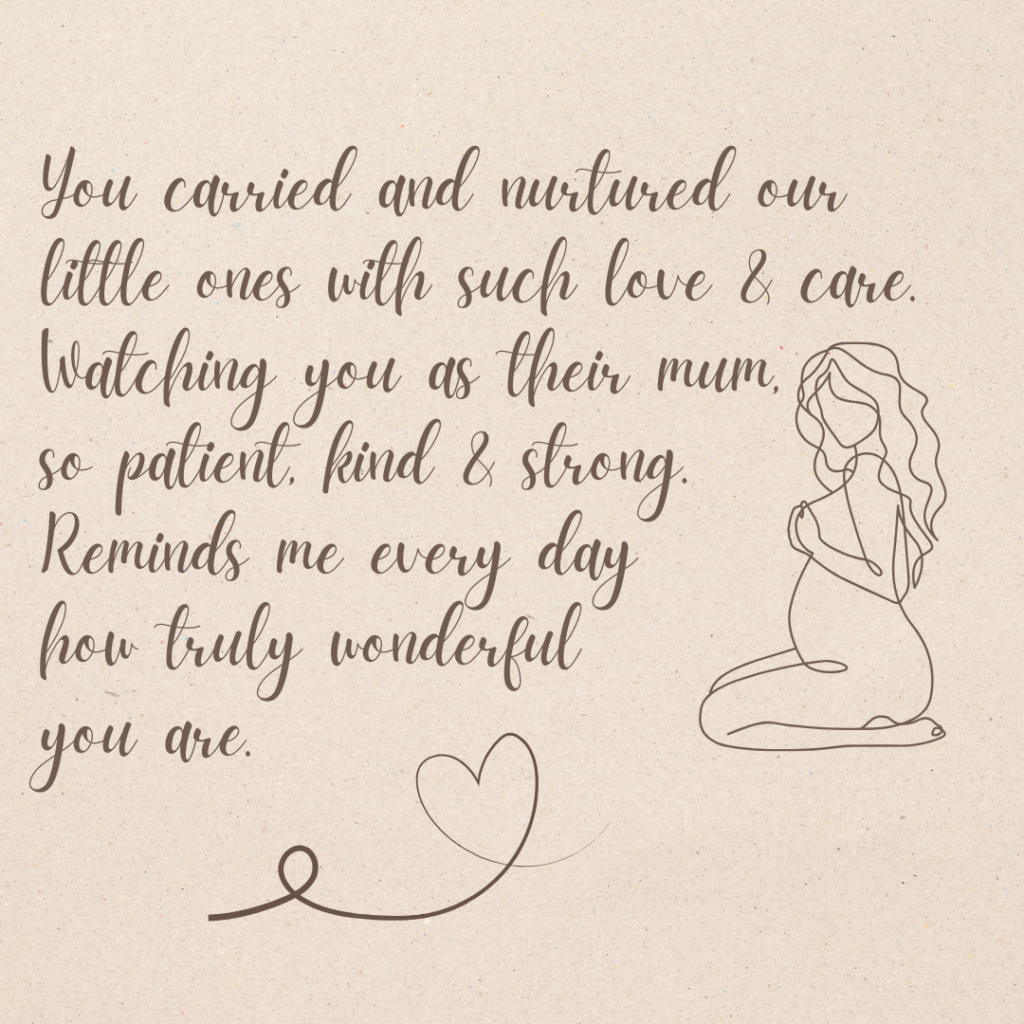 You carried and nurtured our
little ones with such love & care.
Watching you as their mum,
so patient, kind & strong.
Reminds me every day
how truly wonderful
you are.